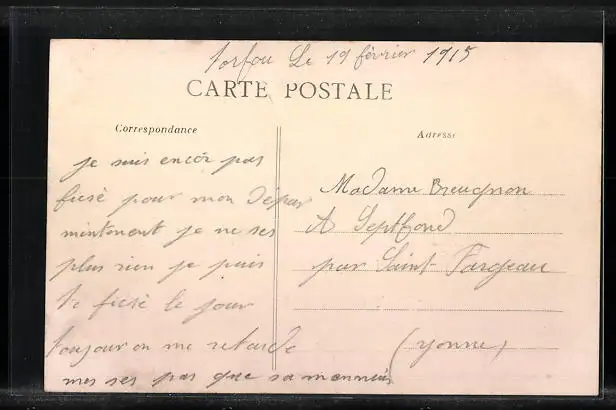 Torfou Le 19 février 1915
CARTE POSTALE
Correspondance
Adresse
je suis encor pas
ficsé pour mon dépar
mintenent je ne ses
plus rien je puis
te ficsé le jour
toujour on me retarde
mes ses pas que sa m'ennuis
Madame Breugnon
A Septfond
par Saint-Fargeau
(yonne)